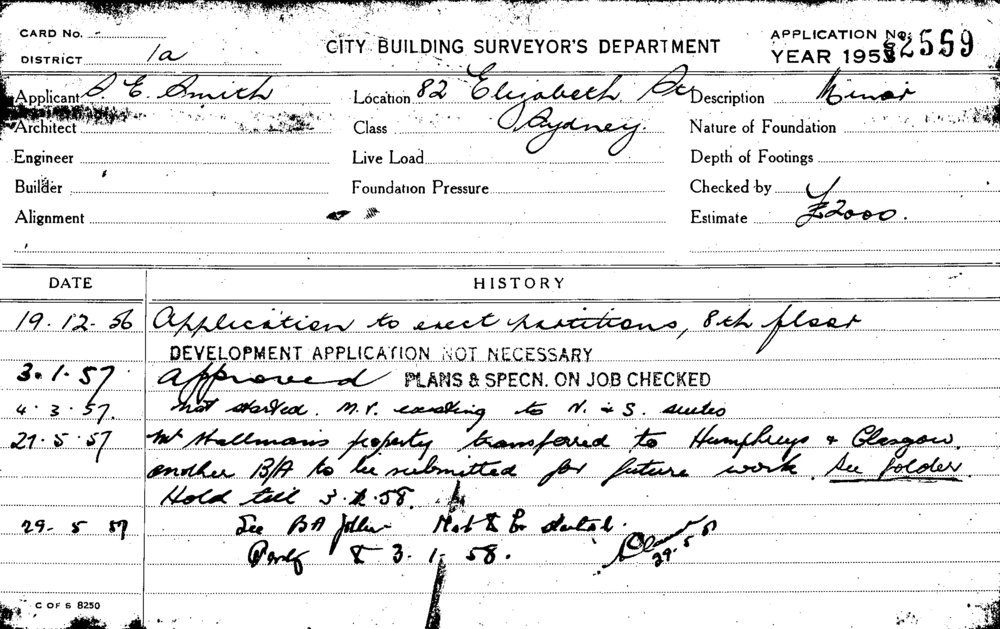 CARD No. -
DISTRICT 1a
CITY BUILDING SURVEYOR'S DEPARTMENT
APPLICATION No. 2559
YEAR 195
Applicant S. E. Smith Location 82 Elizabeth St Description Minor
Architect Class Sydney. Nature of Foundation
Engineer Live Load Depth of Footings
Builder Foundation Pressure Checked by
Alignment Estimate £2000.
DATE HISTORY
19.12.56 Application to erect partitions, 8th floor
DEVELOPMENT APPLICATION NOT NECESSARY
3.1.57 Approved PLANS & SPECN. ON JOB CHECKED
4.3.57. Not started. to N. & S. suites
27.5.57 Mr Hallman's property transferred to Humphreys & Glasgow
another B/A to be submitted for future work. See folder.
Hold till 3. .58.
29. 5 57 See BA folder Not to be started.
3.1.58. 29.5.57
C OF S 8250